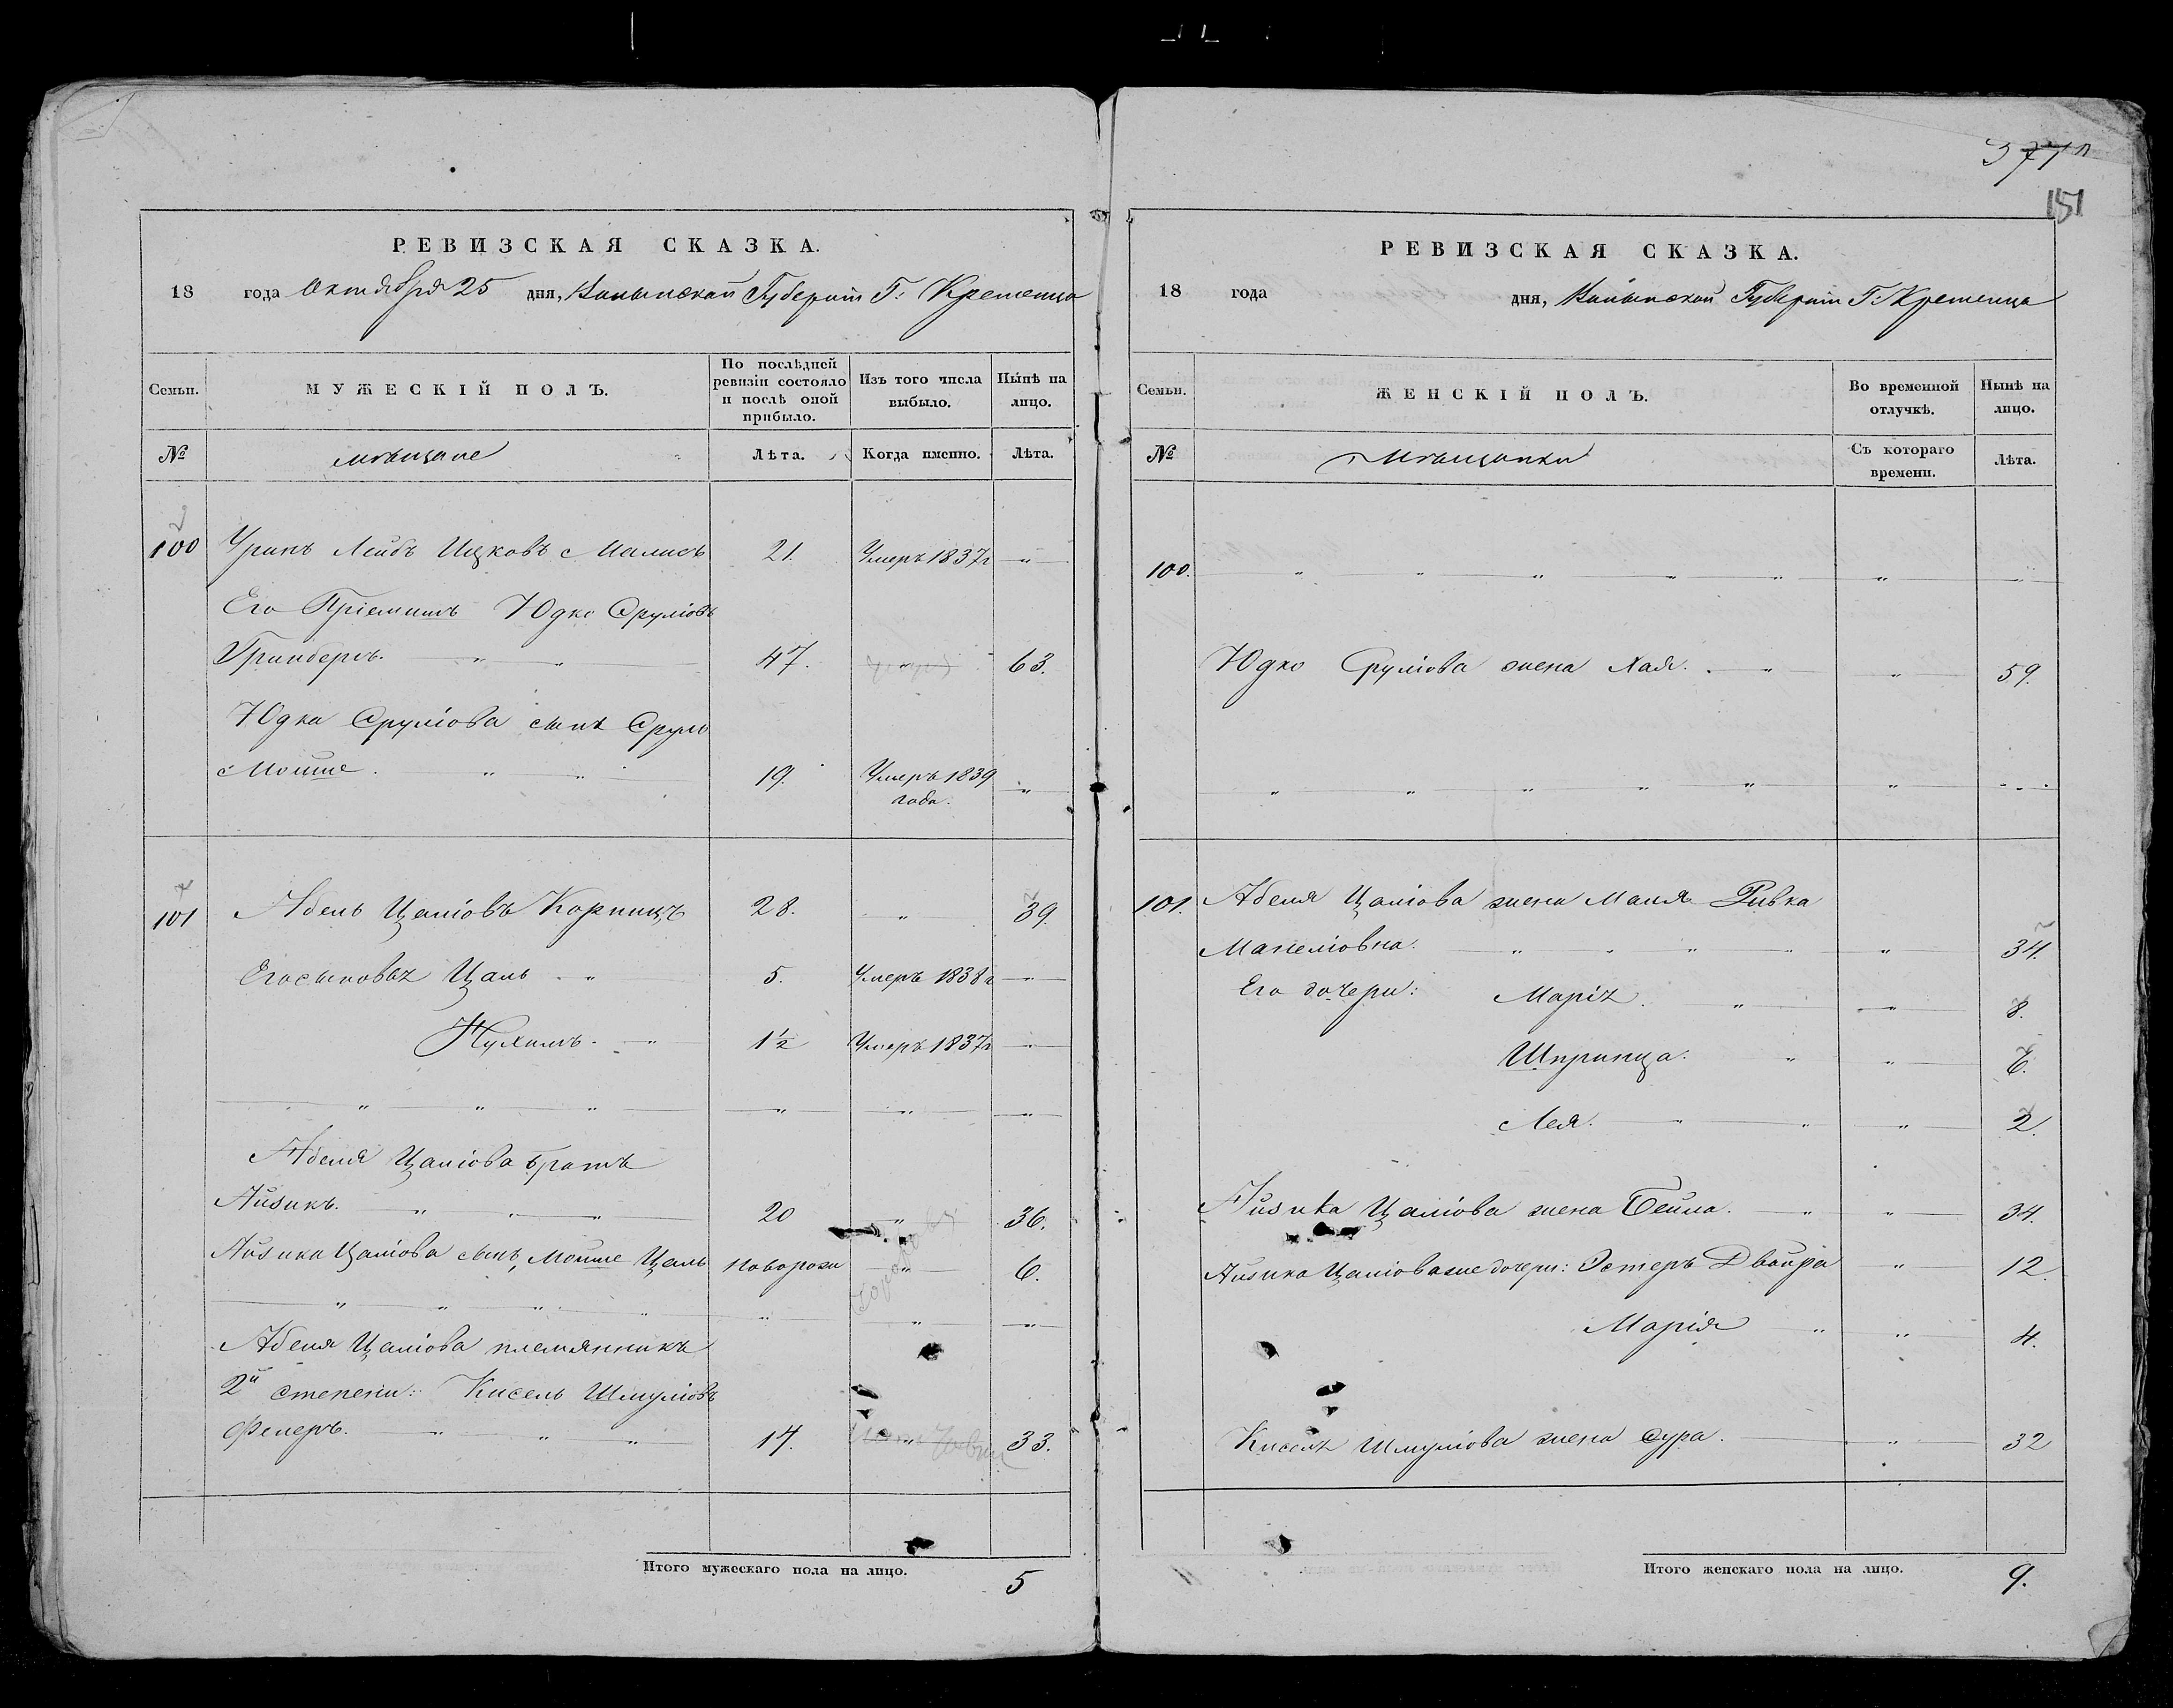 371
151
РЕВИЗСКАЯ СКАЗКА.
18 года Октября 25 дня, Волынской Губерніи Г: Кременца
Семьи. МУЖЕСКІЙ ПОЛЪ. По послѣдней ревизіи состояло и послѣ оной прибыло. Изъ того числа выбыло. Нынѣ на лицо.
№ мѣщане Лѣта. Когда именно. Лѣта.
100 Лейбъ Ицковъ 21. Умеръ 1837г "
Его Пріемышъ Юдко Срулiовъ
Гринбергъ. " " 47. " 63.
Юдка Срулiова сынъ Сруль
Мошше. " " 19. Умеръ 1839 года. "
101 Абель Цалiовъ Корницъ 28. " 39.
Его сыновья Цаль " 5. Умеръ 1838г "
Нухимъ. " 1½ Умеръ 1837г "
" " " " " "
Абеля Цалiова братъ
Айзикъ. " " " 20 " 36.
Айзика Цалiова сынъ, Мошше Цаль новорожи " 6.
" " " " " " "
Абеля Цалiова племянникъ
2й степени: Кисель Шмулiовъ
Фенеръ. " " " 17. " 33.
Итого мужескаго пола на лицо. 5
РЕВИЗСКАЯ СКАЗКА.
18 года дня, Волынской Губерніи Г: Кременца
Семьи. ЖЕНСКІЙ ПОЛЪ. Во временной отлучкѣ. Нынѣ на лицо.
№ Мѣщанки Съ котораго времени. Лѣта.
100. " " " " " " "
Юдко Срулiова жена Хая. " " 59.
" " " " " " "
101. Абеля Цалiова жена Маня Ривка
Манелiовна. " " " " " 34.
Его дочери: Марія. " " 8.
Шпринца. " " 6.
Лея. " " " 2.
Айзика Цалiова жена Бейла. " " 34.
Айзика Цалiова же дочери: Эстеръ Двойра " 12.
Марія " " 4.
Киселя Шмулiова жена Сура. " 32
Итого женскаго пола на лицо. 9.